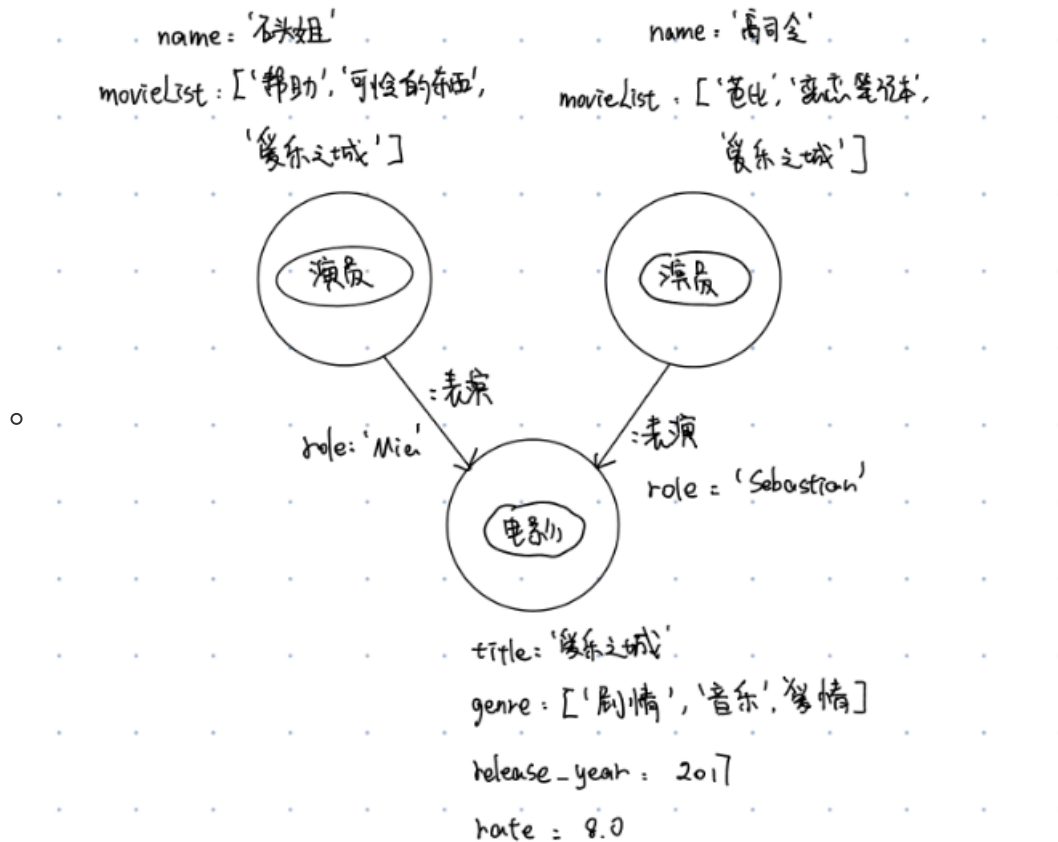 name: '石头姐'
movieList: ['帮助', '可怜的东西',
'爱乐之城']
name: '高司令'
movieList: ['芭比', '恋恋笔记本',
'爱乐之城']
演员
演员
:表演
role: 'Mia'
:表演
role: 'Sebastian'
电影
title: '爱乐之城'
genre: ['剧情', '音乐', '爱情]
release_year: 2017
rate: 8.0